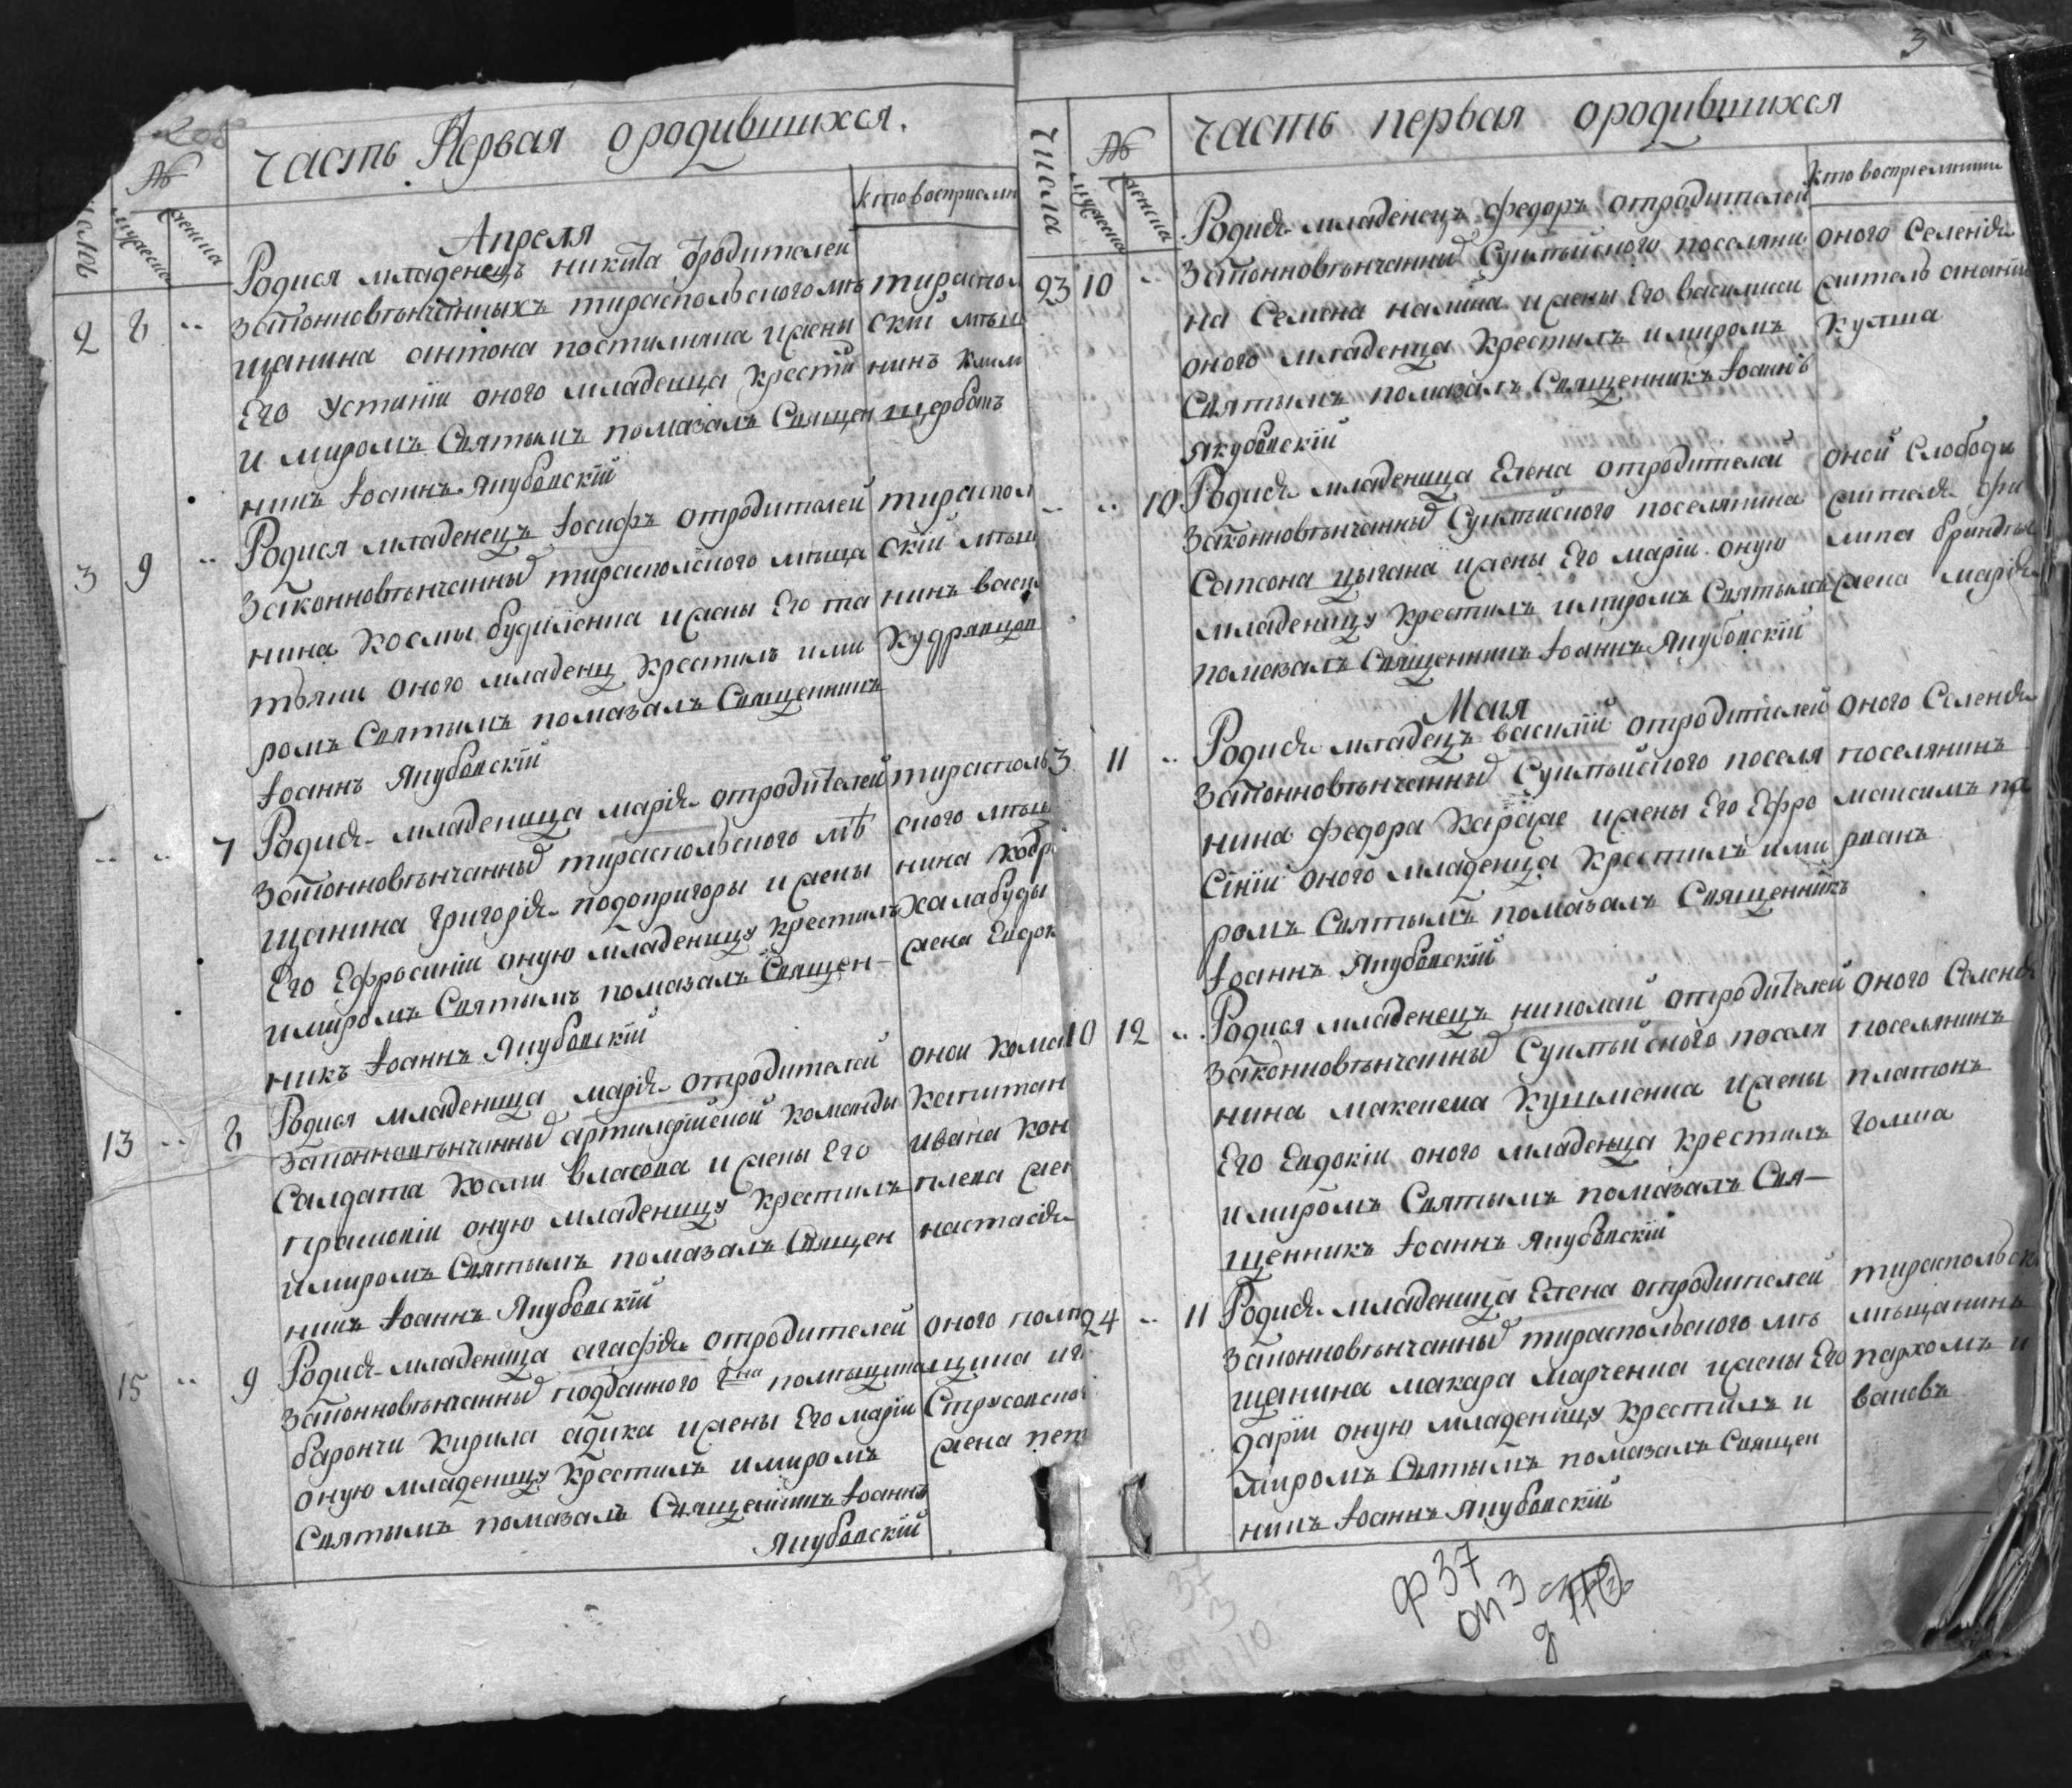 Часть Первая ородившихся.
№
мужеска
женска
кто восприємн
Апреля
2 8 ..
Родися младенецъ никита ѿродителей
Законновѣнчанныхъ тираспольского мѣ
щанина антона постил и жены
Его Устинїи оного младенца крести
и миромъ Святымъ помазалъ Священ
никъ Іоаннъ Якубовскїй
тираспол
скїй мѣщ
нинъ
щербатъ
3 9 ..
Родися младенецъ Іосифъ отродителей
Законновѣнчанныхъ тираспольского мѣща
нина Космы будиленка и жены Его та
тѣяни оного младенц крестилъ и ми
ромъ Святымъ помазалъ Священникъ
Іоаннъ Якубовскїй
тираспол
скїй мѣщ
нинъ васи
кудрявцов
.. .. 7
Родися младеница марїя отродителей
Законновѣнчанныхъ тираспольского мѣ
щанина Григорїя подопригоры и жены
Его Ефросинїи оную младеницу крестилъ
и миромъ Святымъ помазалъ Священ-
никъ Іоаннъ Якубовскїй
тирасполь
ского мѣщ
нина
халабуды
жена Евдок
13 .. 8
Родися младеница марїя отродителей
Законновѣнчанныхъ артилерїйской команды
Салдата Космы власова и жены Его
прасковїи оную младеницу крестилъ
и миромъ Святымъ помазалъ Священ
никъ Іоаннъ Якубовскїй
оной кома
капитан
ивана кон
плева жен
настасїя
15 .. 9
Родися младеница агафїя отродителей
Законновѣнчанныхъ подданного помѣщика
барончи Кирила адика и жены Его марїи
оную младеницу крестилъ и миромъ
Святымъ помазалъ Священникъ Іоаннъ
Якубовскїй
оного помѣ
щика
жена пет
3
Часть первая ородившихся
Числа
№
мужеска
женска
кто восприємники
23 10 ..
Родися младенецъ федоръ отродителей
Законновѣнчанныхъ Суклѣйского поселяни
на Семена калина и жены Его василиси
оного младенца крестилъ и миромъ
Святымъ помазалъ Священникъ Іоаннъ
Якубовскїй
оного Селенїя
житель ананїй
кулша
.. .. 10
Родися младеница Елена отродителей
Законновѣнчанныхъ Суклѣйского поселянина
Самсона цыгана и жены Его марїи оную
младеницу крестилъ и миромъ Святымъ
помазалъ Священникъ Іоаннъ Якубовскїй
оной Слободы
жителя фи
липа
жена марїя
Маїя
3 11 ..
Родися младецъ василїй отродителей
Законновѣнчанныхъ Суклѣйского поселя
нина федора и жены Его Ефро
сїнїи оного младенца крестилъ и ми
ромъ Святымъ помазалъ Священникъ
Іоаннъ Якубовскїй
оного Селенїя
поселянинъ
максимъ
10 12 ..
Родися младенецъ николай отродителей
Законновѣнчанныхъ Суклѣйского поселя
нина максима Кушменка и жены
Его Евдокїи оного младенца крестилъ
и миромъ Святымъ помазалъ Свя-
щенникъ Іоаннъ Якубовскїй
оного Селенїя
поселянинъ
платонъ
24 .. 11
Родися младеница Елена отродителей
Законновѣнчанныхъ тираспольского мѣ
щанина макара марченка и жены Его
дарїи оную младеницу крестилъ и
миромъ Святымъ помазалъ Священ
никъ Іоаннъ Якубовскїй
тираспольск
мѣщанинъ
пархомъ и
вановъ
ф 37
оп 3